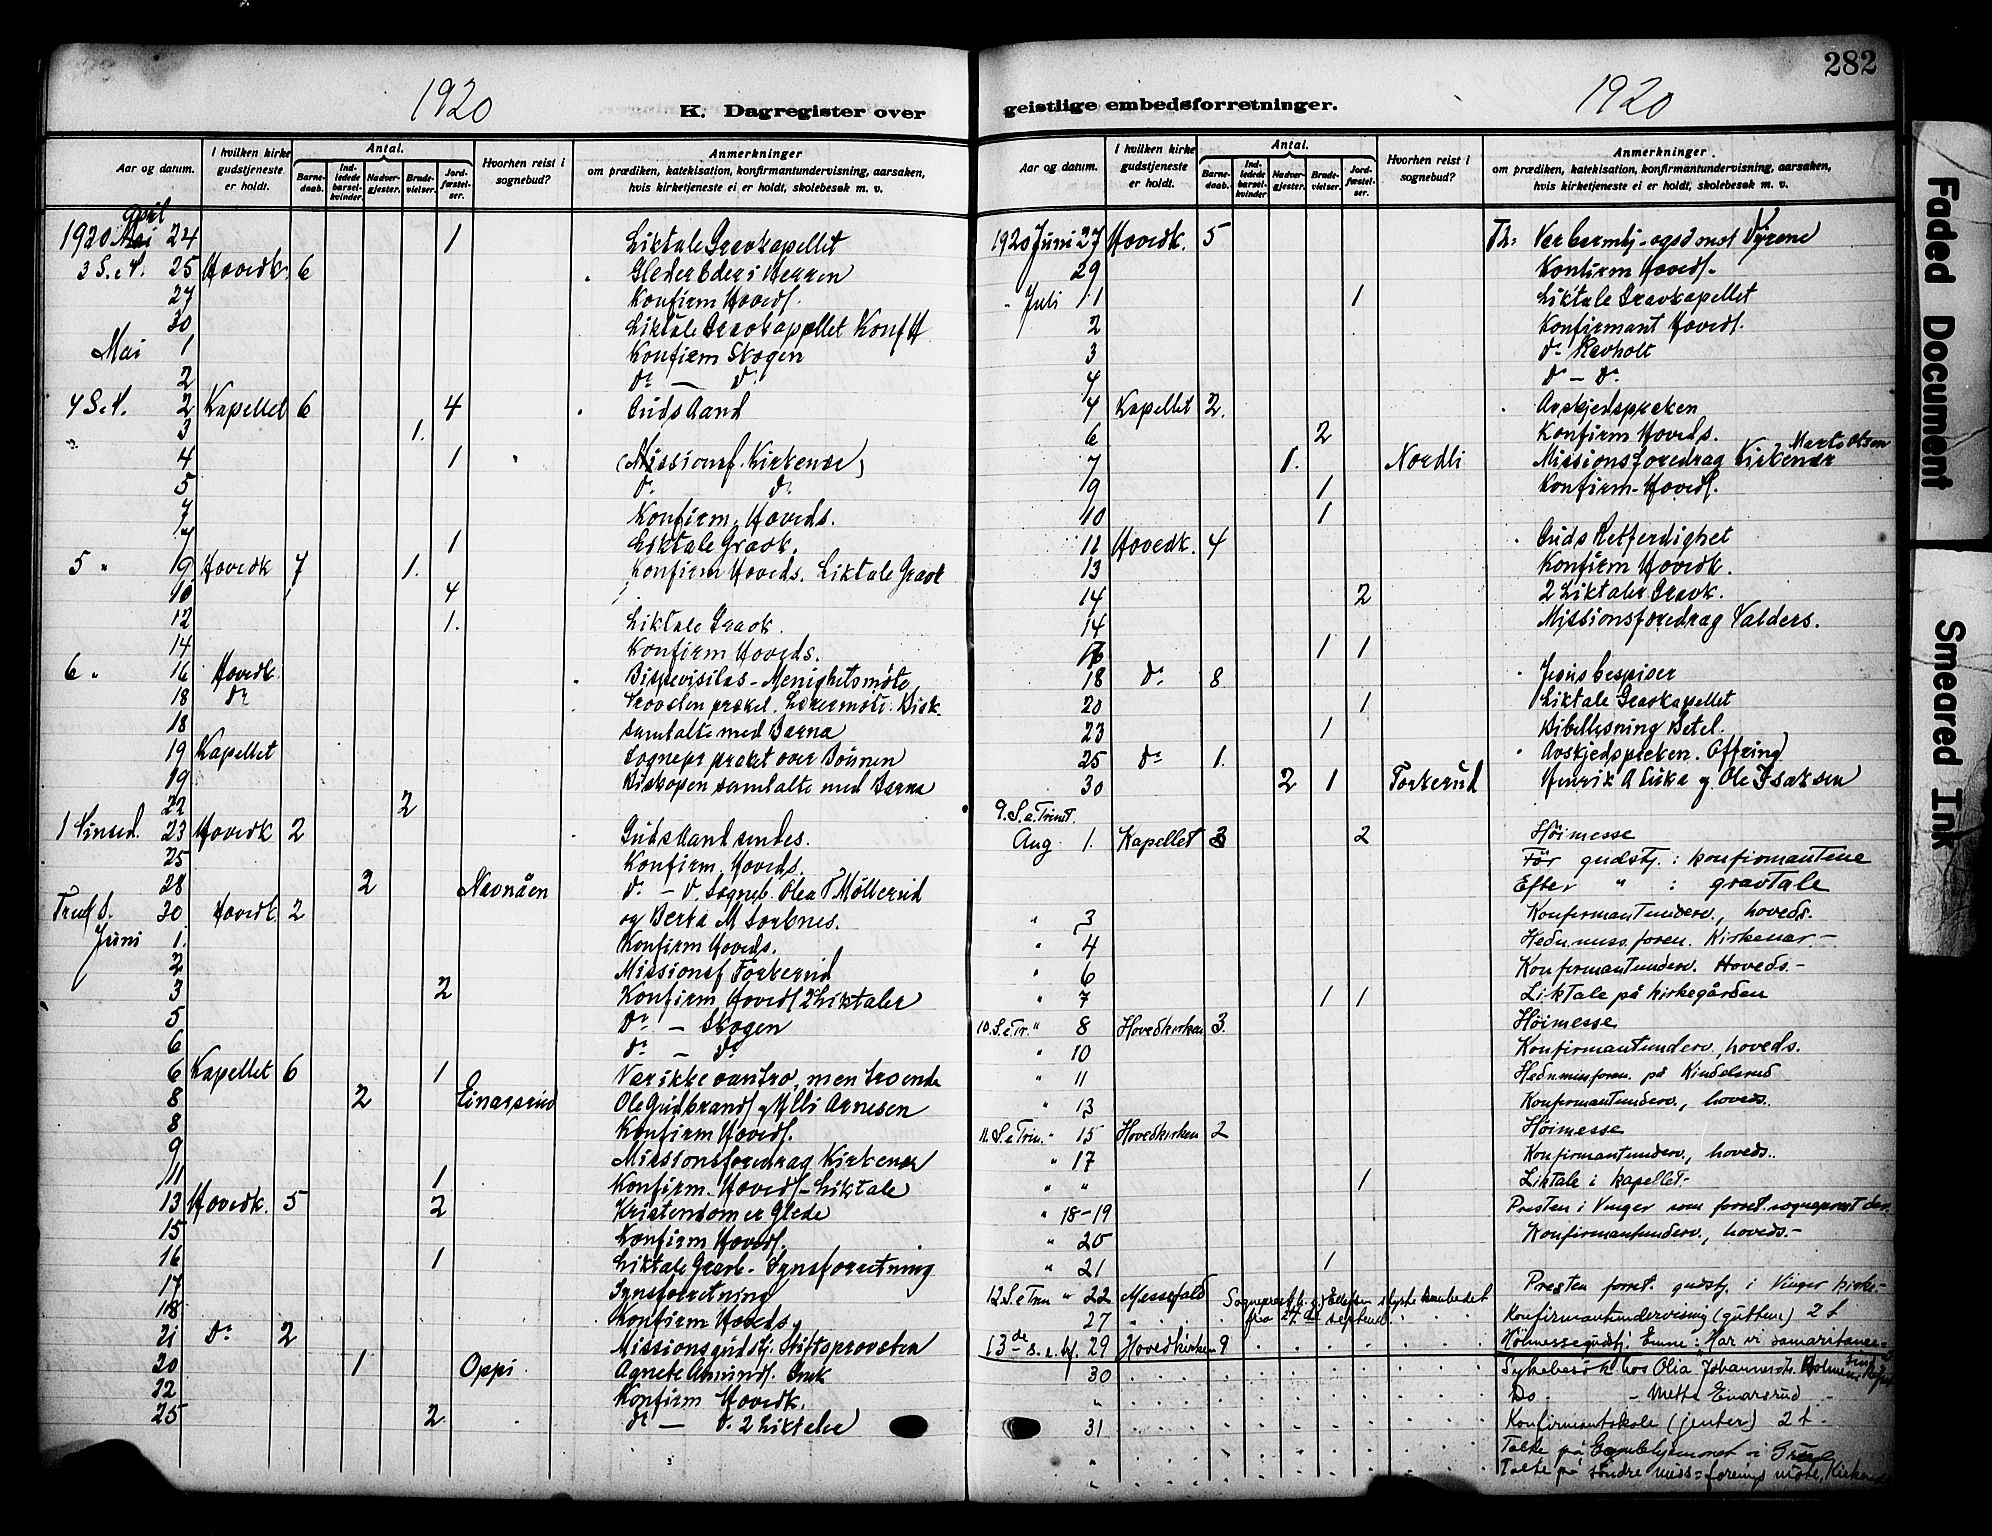 282
1920
K. Dagregister over
Aar og datum.
I hvilken kirke gudstjeneste er holdt.
Antal.
Barnedaab.
Indledede barselkvinder.
Nadvergjester.
Brudevielser.
Jordfæstelser.
Hvorhen reist i sognebud?
Anmerkninger
om prædiken, katekisation, konfirmantundervisning, aarsaken, hvis kirketjeneste ei er holdt, skolebesøk m. v.
april
1920 Mai 24 1 Liktale Gravkapellet
3 S.e.P. 25 Hovedk. 6 Gleder Eder i Herren
27 Konfirm Hoveds.
30 Liktale Gravkapellet Konf H
Mai 1 Konfirm Skogen
2 Do — Do
4 S.e.P. 2 Kapellet 6 4 Guds Aand
3 1.
4 1 (Missionsf. Kirkenær)
5 Do Do
7 Konfirm. Hoveds.
7 1 Liktale Gravk.
5 " 9 Hovedk 7 1. Konfirm Hoveds. Liktale Gravk
10 4
12 1. Liktale Gravk.
14 Konfirm Hoveds.
6 " 16 Hovedk Bispevisitas - Menighetsmøte
18 Do Provsten præket. Lærermøte. Bisk.
18 samtalte med Barna
19 Kapellet Sognepr præket over Bønnen
19 Biskopen samtalte med Barna
22 2
1 Pinsed. 23 Hovedk 2 Guds Aand sendes.
25 Konfirm. Hoveds.
28 2 Navnåen Do — Do Sogneb. Olea P Møllerud
Tref S. 30 Hovedk. 2 og Berta M
Juni 1. Konfirm Hoveds.
2 Missionsf Torkerud
3 2 Konfirm Hoveds 2 Liktaler
5 Do — Skogen
6 Do — Do
6 Kapellet 6 1 Vær ikke vantro, men troende
8 2 Einarsrud Ole Gudbrands og Milli Arnesen
8 Konfirm Hoveds.
9 Missionsforedrag Kirkenær
11 1 Konfirm. Hoveds - Liktale
13 Hovedk. 5 2 Kristendom er Glede
15 Konfirm Hoveds.
16 1 Liktale Gravk - Synsforretning
17 Synsforretning
18 Konfirm Hoveds
21 Do 2 Missionsgudstj. Stiftsprovsten
20 1 Oppi Agnete Amunds.
22 Konfirm Hovedk.
25 2 Do — Do. 2 Liktaler
geistlige embedsforretninger.
1920
Aar og datum.
I hvilken kirke gudstjeneste er holdt.
Antal.
Barnedaab.
Indledede barselkvinder.
Nadvergjester.
Brudevielser.
Jordfæstelser.
Hvorhen reist i sognebud?
Anmerkninger.
om prædiken, katekisation, konfirmantundervisning, aarsaken, hvis kirketjeneste ei er holdt, skolebesøk m. v.
1920 Juni 27 Hovedk. 5 Th: Vær barmhj. ogsd mot Dyrene
29 Konfirm Hoveds.
" Juli 1 1 Liktale Gravkapellet
2 Konfirmant Hoveds.
3 Do Revholt
4 Do — Do
4 Kapellet 2. Avskjedspreken
6 2 Konfirm Hoveds.
7 1. Nordli Missionsforedrag Kirkenær Marta Olsen
9 1 Konfirm. Hoveds.
10 1
11 Hovedk. 4 Guds Retferdighet
13 Konfirm Hovedk.
14 2 2 Liktaler Gravk.
14 Missionsforedrag Valders.
16 1 1
18 Do 8 Jesus bespiser
20 1 Liktale Gravkapellet
23 1 Bibellesning Betel.
25 Do 1. Avskjedspreken. Offring
30 2 1 Torkerud Henrik A Luka og Ole Isaksen
9. S. e Trinit.
Aug 1. Kapellet 3 2 Høimesse
Før gudstj. : konfirmantene
Efter " : gravtale
" 3 Konfirmantunderv., hoveds.
" 4 Hedn. miss. foren. Kirkenær. -
" 6 Konfirmantunderv. Hoveds. -
" 7 1 1 Liktale på kirkegården
10. S. e. Tr. " 8 Hovedkirken 3. Høimesse
" 10 Konfirmantunderv., hoveds.
" 11 Hedn. miss foren. på Kindelsrud
" 13 Konfirmantunderv., hoveds..
11. S. e Trin. " 15 Hovedkirken 2 Høimesse
" 17 Konfirmantunderv., hoveds..
" " 1 Liktale i kapellet -
" 18-19 Presten i Vinger som forret. sogneprest der.
" 20 Konfirmantunderv., hoveds. -
" 21 1
12. S. e Trin " 22 Messefald Presten forret. gudstj. i Vinger kirke -
Sogneprest Ellefsen styrte embedet fra 27. septemb.
27 Konfirmantundervisning (gutten) 2 t
13de s. e. tr. 29 Hovedkirken 9 Høimessegudstj. Emne: Har vi samaritaner-sind
30 Sykebesøk hos Olia Johannesdt. Holmen
" Do - Mette Einarsrud -
31 Konfirmantskole (jenter) 2 t -
" Talte på Gamlehjemmet i
" Talte på søndre miss=forenings møte, Kirkenær
Faded Document
Smeared Ink